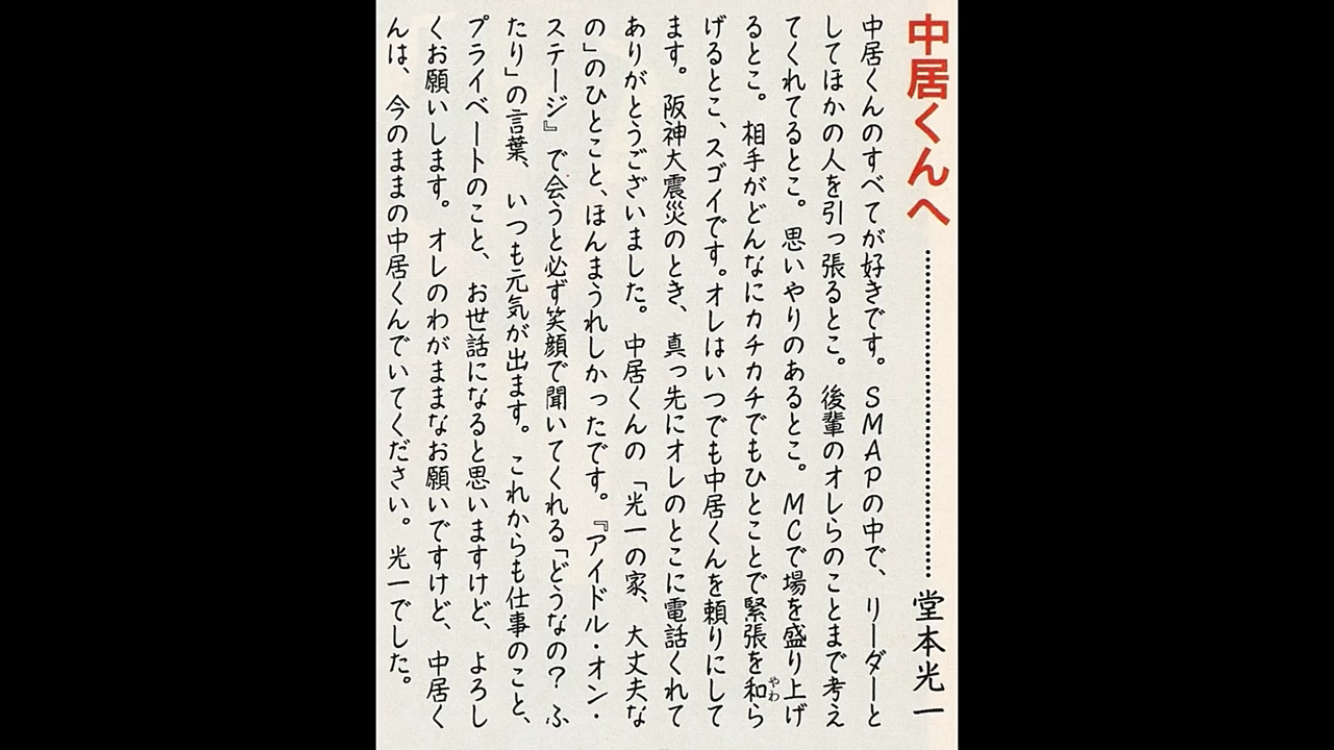 中居くんへ
堂本光一
中居くんのすべてが好きです。SMAPの中で、リーダーと
してほかの人を引っ張るとこ。後輩のオレらのことまで考え
てくれてるとこ。思いやりのあるとこ。MCで場を盛り上げ
るとこ。相手がどんなにカチカチでもひとことで緊張を和やわら
げるとこ、スゴイです。オレはいつでも中居くんを頼りにして
ます。阪神大震災のとき、真っ先にオレのとこに電話くれて
ありがとうございました。中居くんの「光一の家、大丈夫な
の」のひとこと、ほんまうれしかったです。『アイドル・オン・
ステージ』で会うと必ず笑顔で聞いてくれる「どうなの？ふ
たり」の言葉、いつも元気が出ます。これからも仕事のこと、
プライベートのこと、お世話になると思いますけど、よろし
くお願いします。オレのわがままなお願いですけど、中居く
んは、今のままの中居くんでいてください。光一でした。